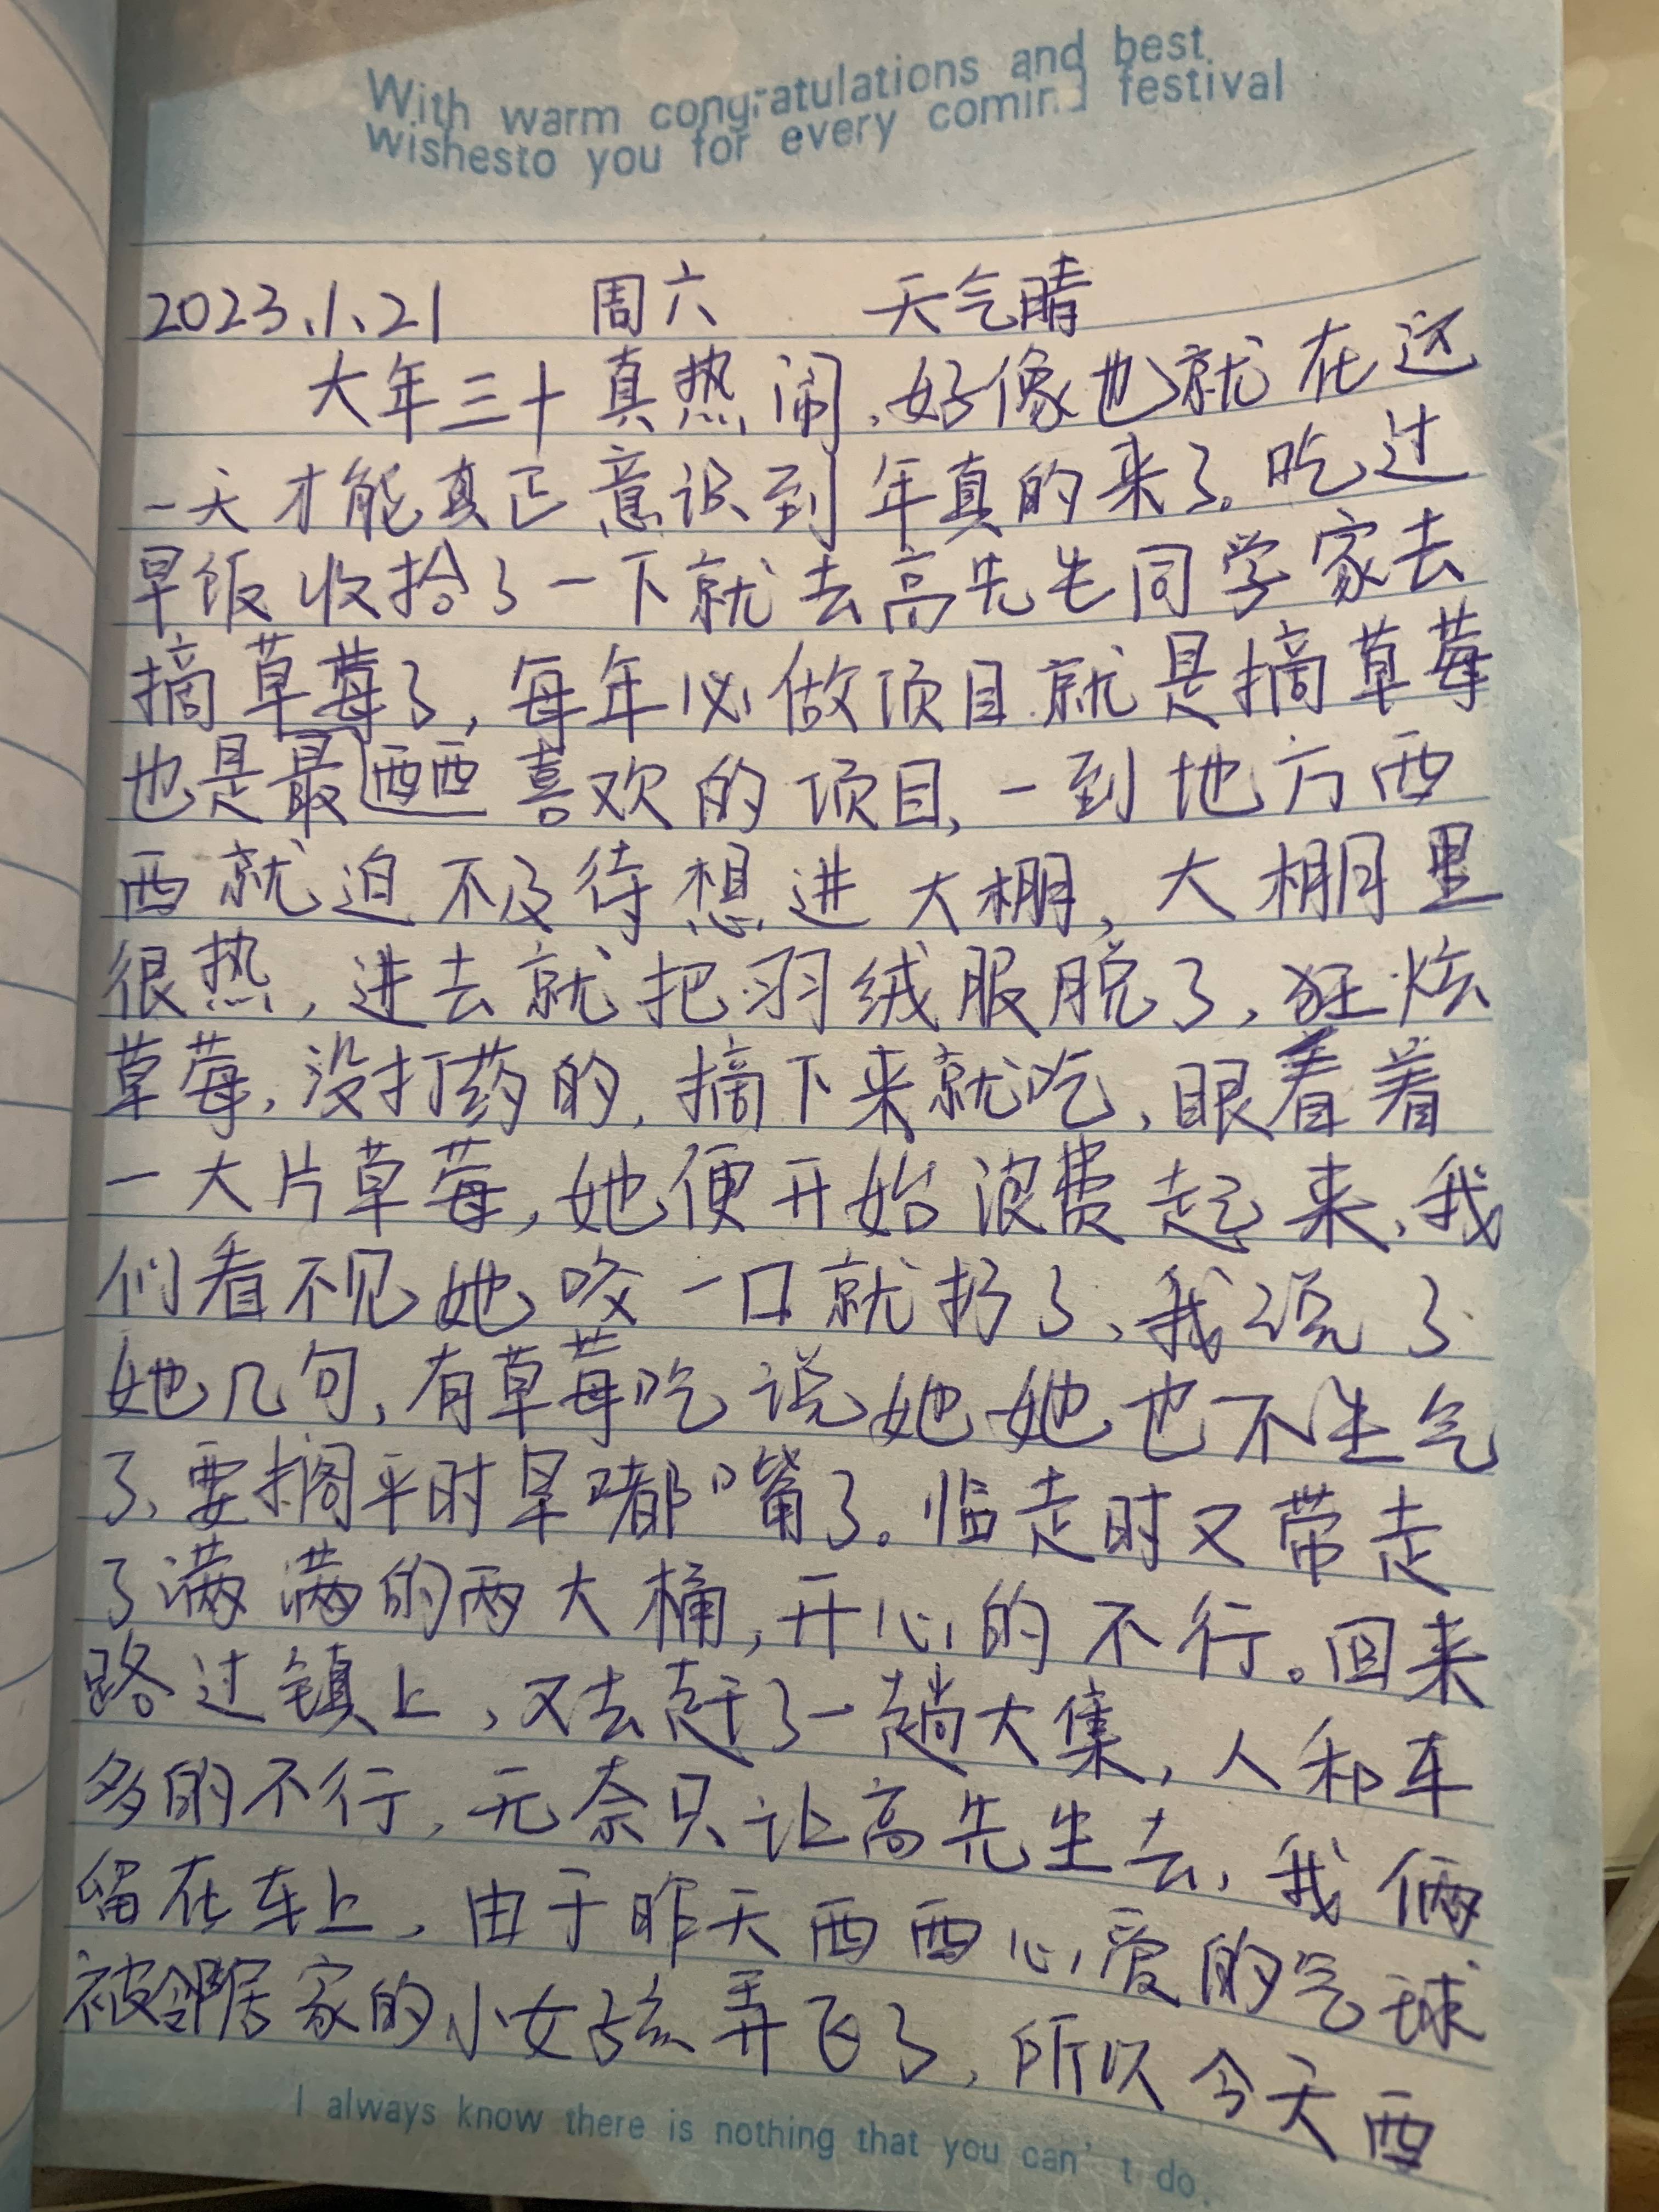 With warm congratulations and best
wishesto you for every coming festival
2023.1.21 周六 天气晴
大年三十真热闹,好像也就在这
一天才能真正意识到年真的来了。吃过
早饭收拾了一下就去高先生同学家去
摘草莓了,每年必做项目就是摘草莓
也是最西西喜欢的项目,一到地方西
西就迫不及待想进大棚,大棚里
很热,进去就把羽绒服脱了,狂炫
草莓,没打药的,摘下来就吃,眼看着
一大片草莓,她便开始浪费起来,我
们看不见她咬一口就扔了,我说了
她几句,有草莓吃说她她也不生气
了,要搁平时早嘟嘴了。临走时又带走
了满满的两大桶,开心的不行。回来
路过镇上,又去赶了一趟大集,人和车
多的不行,无奈只让高先生去,我俩
留在车上,由于昨天西西心爱的气球
被邻居家的小女孩弄飞了,所以今天西
I always know there is nothing that you can't do.